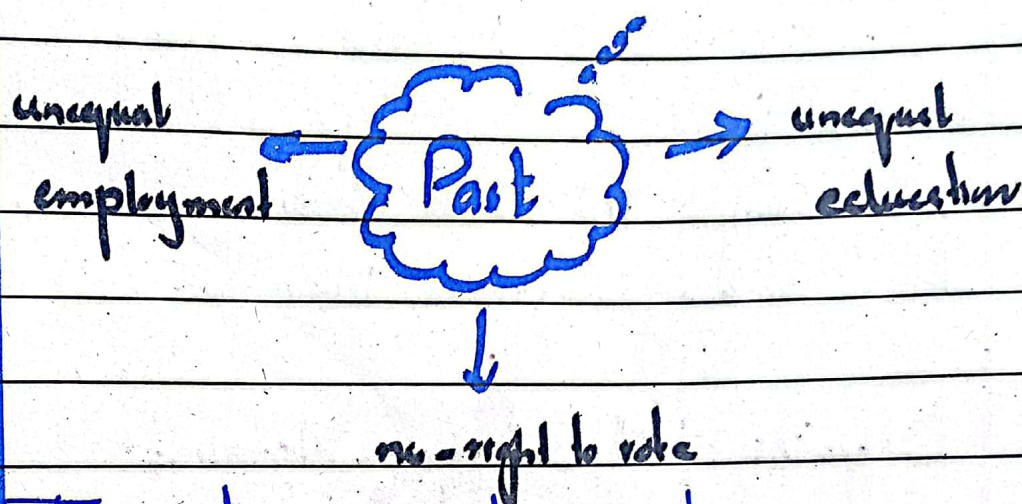 unequal
employment
Past
unequal
education
no-right to vote